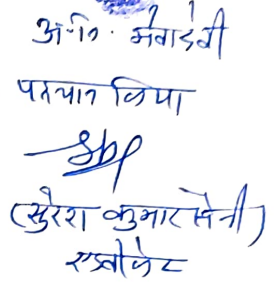 अ.नि. मेवादेवी
पहचान किया
(सुरेश कुमार सैनी)
एडवोकेट